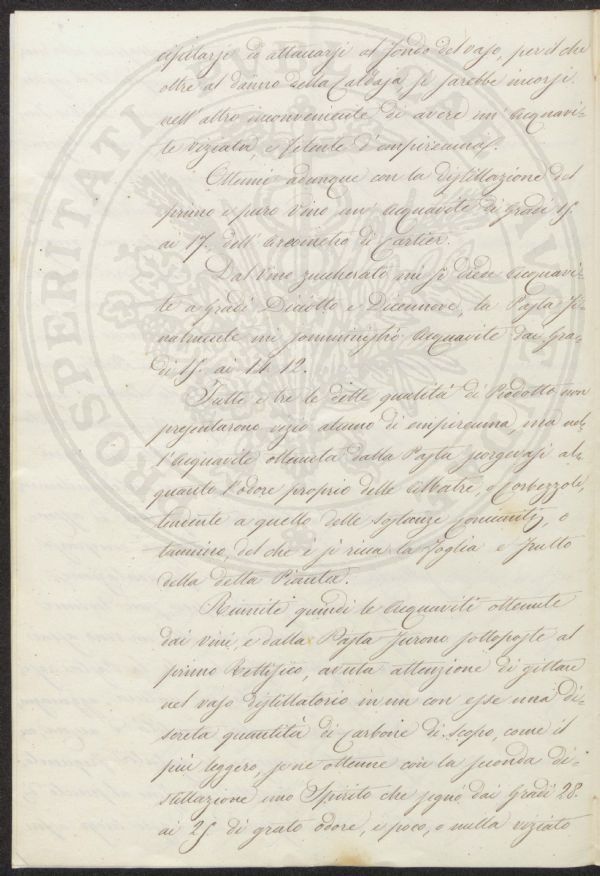 cipitarsi ed attaccarsi al fondo del vaso, per il che
oltre al danno della Caldaja, si sarebbe incorsi
nell'altro inconveniente di avere un'acquavi-
te viziata, e fetente d'empireuma.
Ottenni adunque con la distillazione del
primo e puro Vino un'acquavite di gradi 15.
ai 17. dell'areometro di Cartier.
Dal Vino zuccherato mi si diede acquavi-
te a gradi Diciotto e Diecinove, la Pasta fi-
nalmente mi somministrò acquavite dai gra-
di
Tutte e tre le dette qualità di Prodotto non
presentarono vizio alcuno di empireuma, ma nel-
l'acquavite ottenuta dalla Pasta scorgevasi al-
quanto l'odore proprio delle Albatre, o Corbezzole,
tendente a quello delle sostanze concianti, o
tannino, del che è sì ricca la foglia e frutto
della detta Pianta.
Riunite quindi le acquaviti ottenute
dai vini, e dalla Pasta furono sottoposte al
primo Rettifico, avuta attenzione di gittare
nel vaso distillatorio in un con esse una di-
screta quantità di Carbone di scopo, come il
più leggero, se ne ottenne con la seconda di-
stillazione uno Spirito che segnò dai gradi 28.
ai 25 di grato odore, e poco, o nulla viziato
PROSPERITATI PUBLICAE AUGENDAE